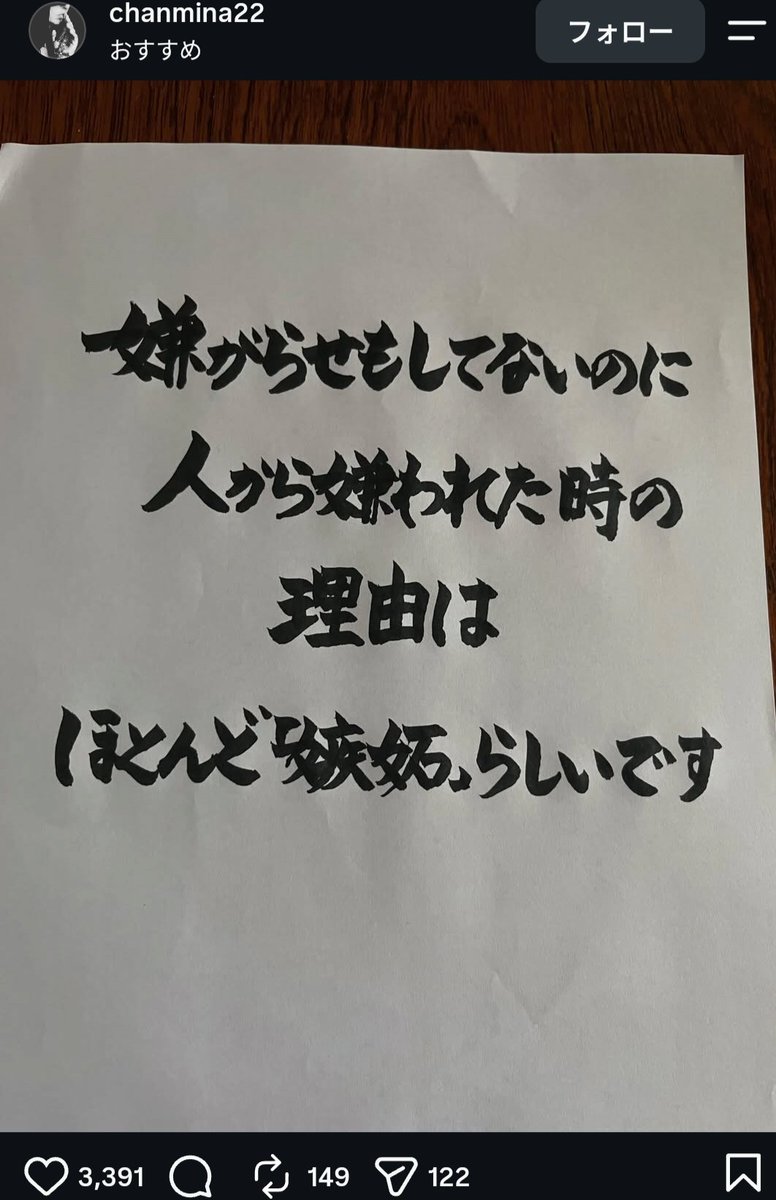 chanmina22
おすすめ
フォロー
嫌がらせもしてないのに
人から嫌われた時の
理由は
ほとんど「嫉妬」らしいです
3,391
149
122